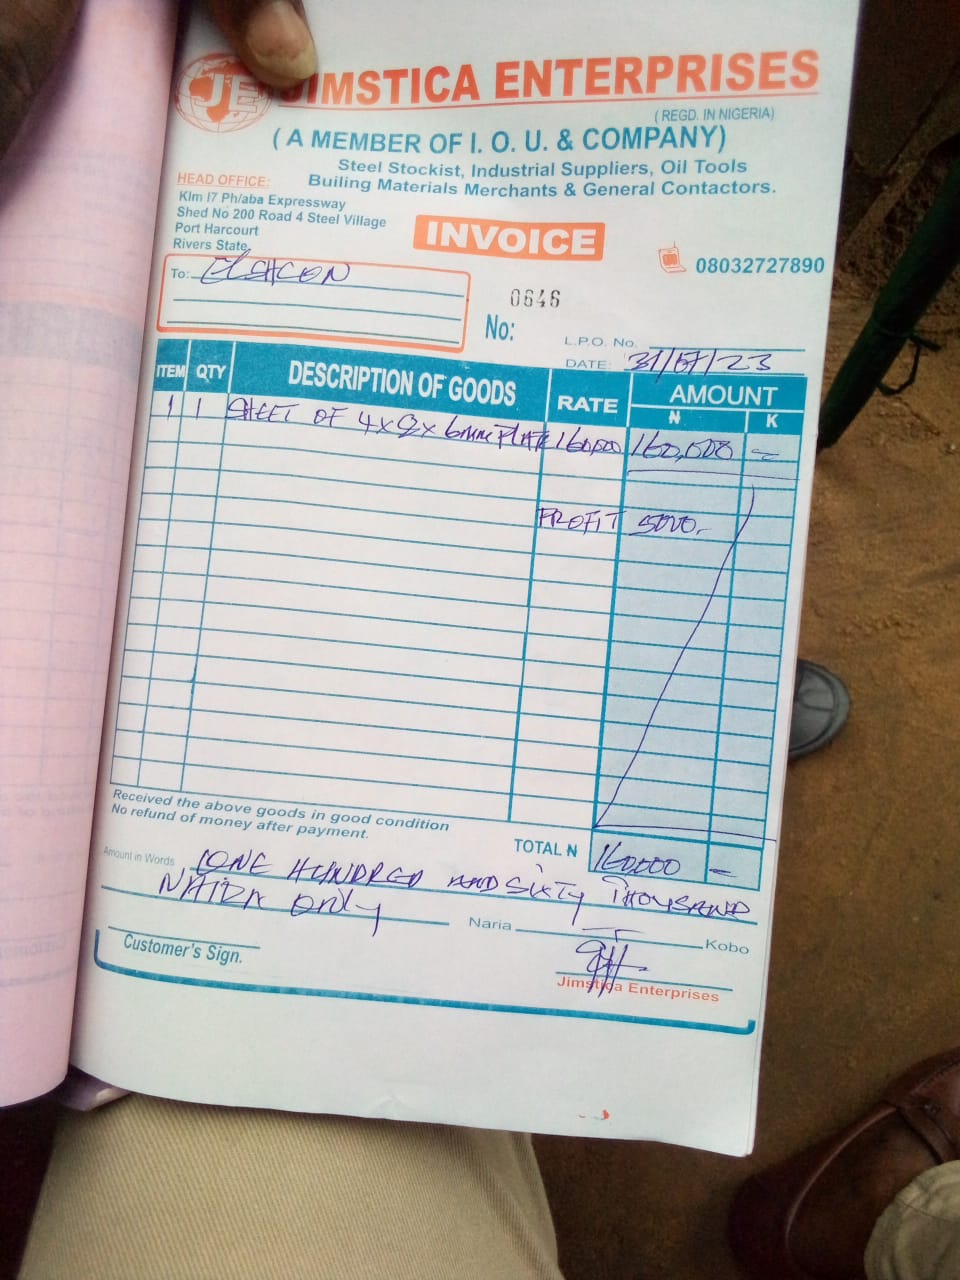 JE JIMSTICA ENTERPRISES
(REGD. IN NIGERIA)
(A MEMBER OF I. O. U. & COMPANY)
Steel Stockist, Industrial Suppliers, Oil Tools
Builing Materials Merchants & General Contactors.
HEAD OFFICE:
Klm I7 Ph/aba Expressway
Shed No 200 Road 4 Steel Village
Port Harcourt
Rivers State.
INVOICE
08032727890
To: ELSHCON
0646
No:
L.P.O. No.
DATE: 31/07/23
ITEM QTY DESCRIPTION OF GOODS RATE AMOUNT
₦ K
1 1 SHEET OF 4 x 8 x 6mm PLATE 160,000 160,000 =
PROFIT 5000.
Received the above goods in good condition
No refund of money after payment.
TOTAL ₦ 160,000 =
Amount in Words ONE HUNDRED AND SIXTY THOUSAND
NAIRA ONLY Naria Kobo
Customer's Sign.
Jimstica Enterprises